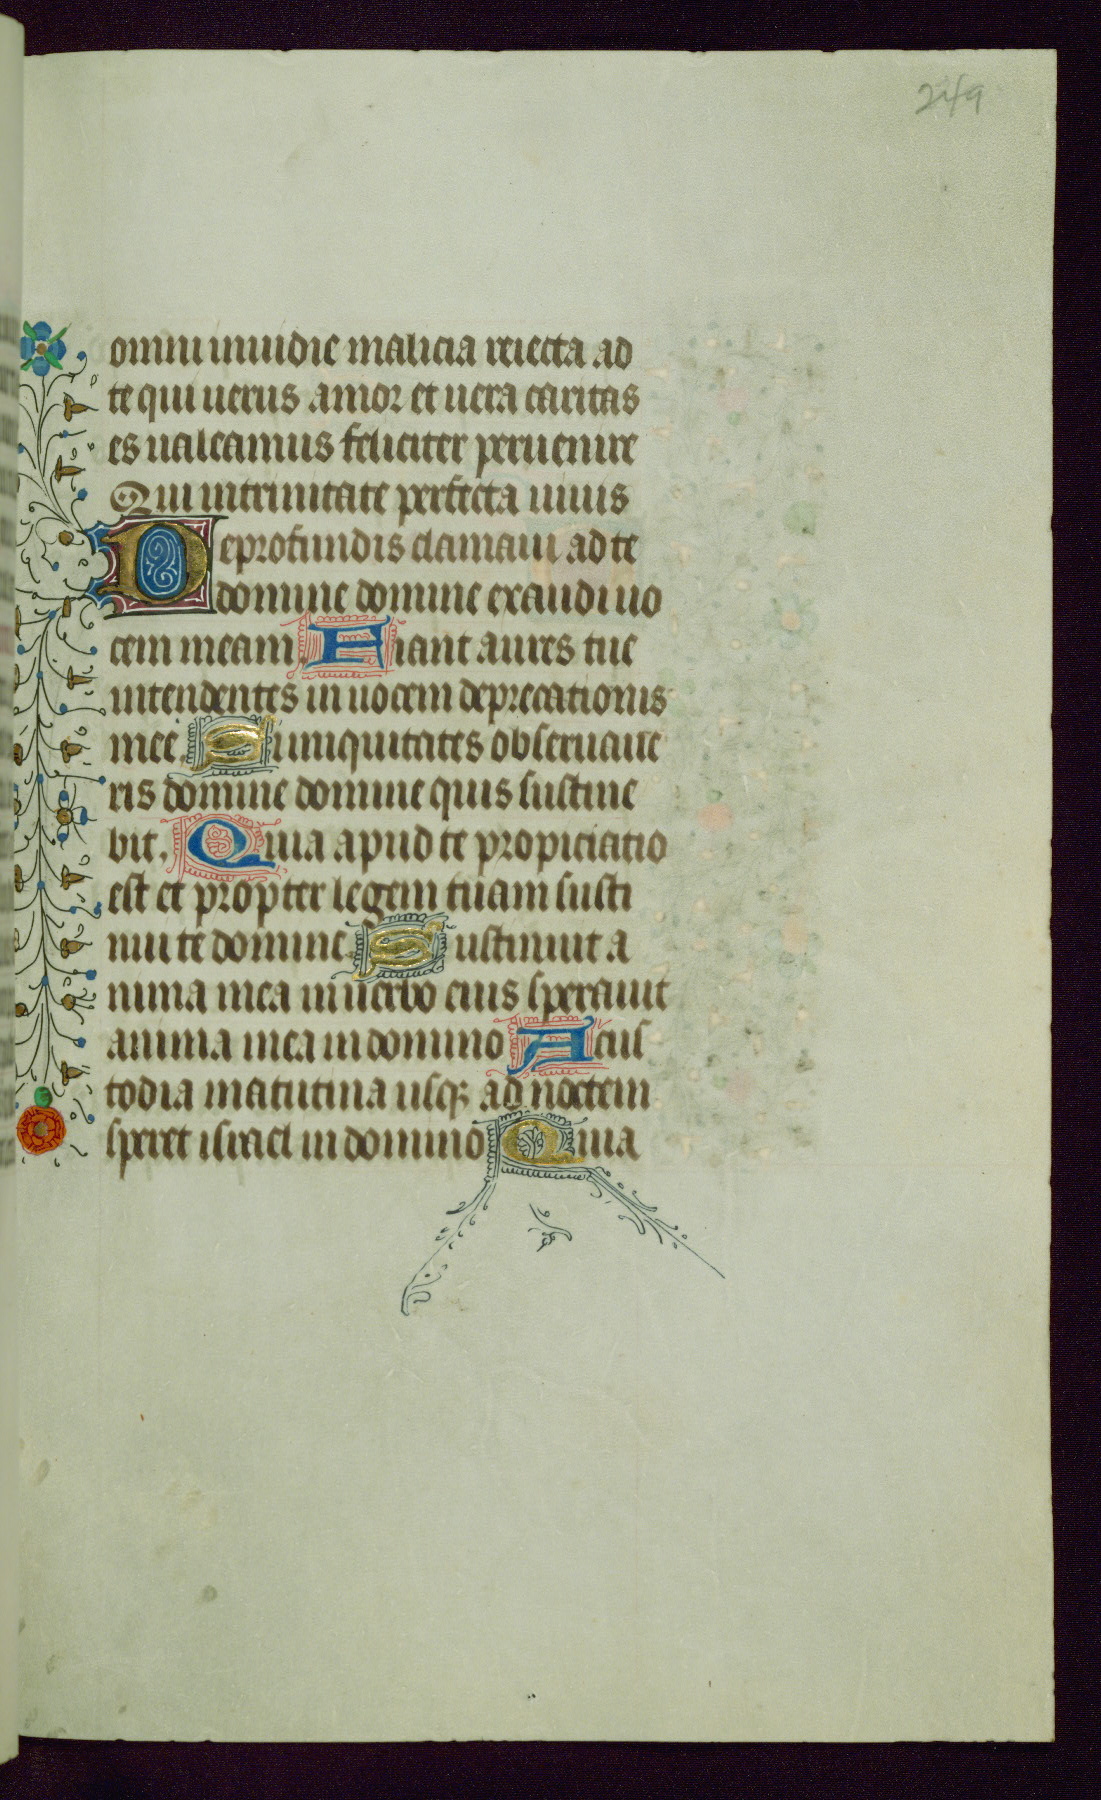 249
omni inuidie malicia reiecta ad
te qui uerus amor et uera caritas
es ualeamus feliciter peruenire
Qui in trinitate perfecta uiuis
De profundis clamaui ad te
domine domine exaudi uo
cem meam. Fiant aures tue
intendentes in uocem deprecationis
mee. Si iniquitates obseruaue
ris domine domine quis sustine
bit. Quia apud te propiciatio
est et propter legem tuam susti
nui te domine. Sustinuit a
nima mea in uerbo eius sperauit
anima mea in domino A cus
todia matutina usq; ad noctem
speret israel in domino Quia